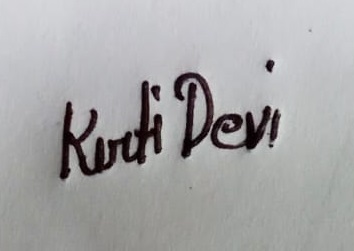 Kirti Devi